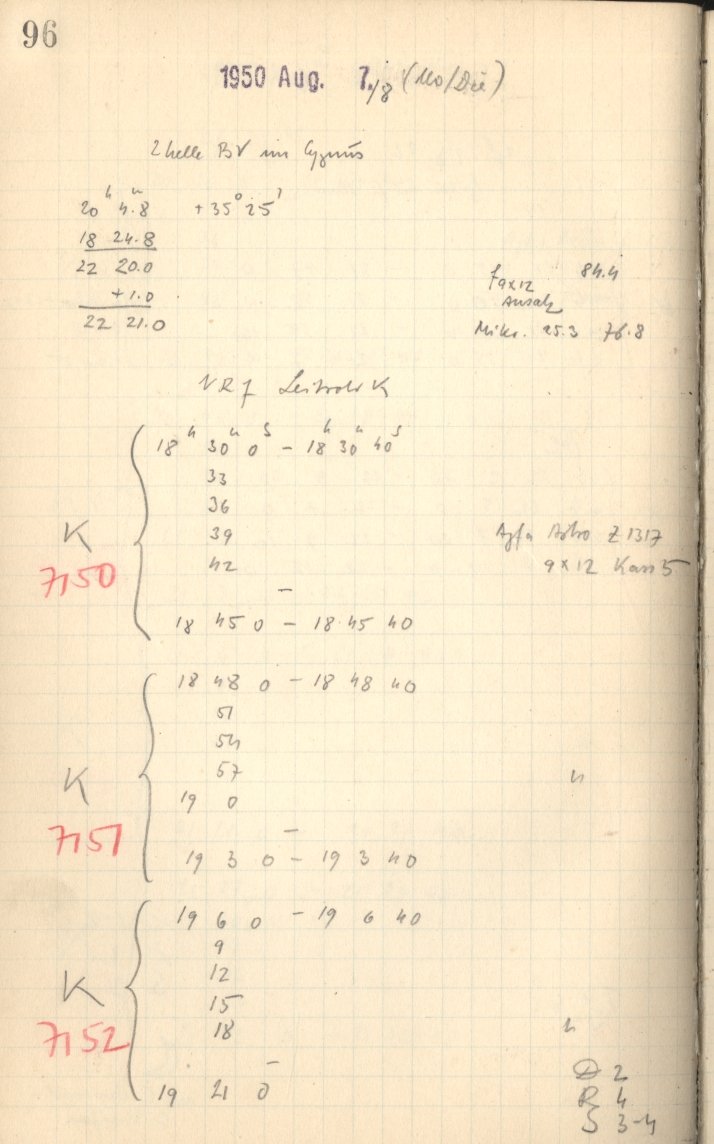 96
1950 Aug. 7./8 (Mo/Die)
2 helle BV im Cygnus
20 h 4.8 m +35° 25'
18 24.8
22 20.0
+1.0
22 21.0
f 9x12 84.4
Ansatz
Mikr. 25.3 76.8
K
18 h 30 m 0 s - 18 h 30 m 40 s
33
36
39
42
-
18 45 0 - 18 45 40
7150
Agfa Astro Z 1317
9 x 12 Kass 5
18 48 0 - 18 48 40
51
54
57
19 0
-
19 3 0 - 19 3 40
K
7151
"
19 6 0 - 19 6 40
9
12
15
18
-
19 21 0
K
7152
"
D 2
R 4
S 3-4